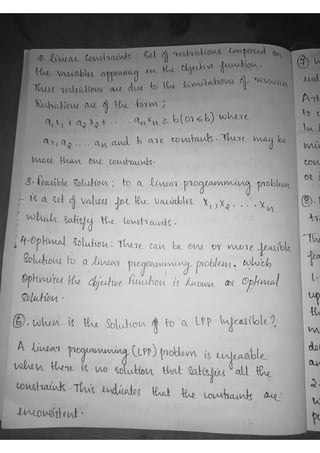 2. Linear Constraints: Set of restrictions imposed on
the variables appearing in the objective function.
These restrictions are due to the limitations of resources
Restrictions are of the form;
a₁x₁ + a₂x₂ + ..... aₙxₙ ≥ b (or ≤ b) where
a₁, a₂ .... aₙ and b are constants. There may be
more than one constraints.
3. Feasible Solution; to a linear programming problem
is a set of values for the variables x₁, x₂ .... xₙ
which satisfy the constraints.
4. Optimal Solution: There can be one or more feasible
Solutions to a linear programming problem. which
Optimizes the objective function is known as Optimal
Solution.
⑥. When is the Solution to a LPP Infeasible?
A linear programming (LPP) problem is infeasible
when there is no solution that satisfies all the
constraints. This indicates that the constraints are
inconsistent.